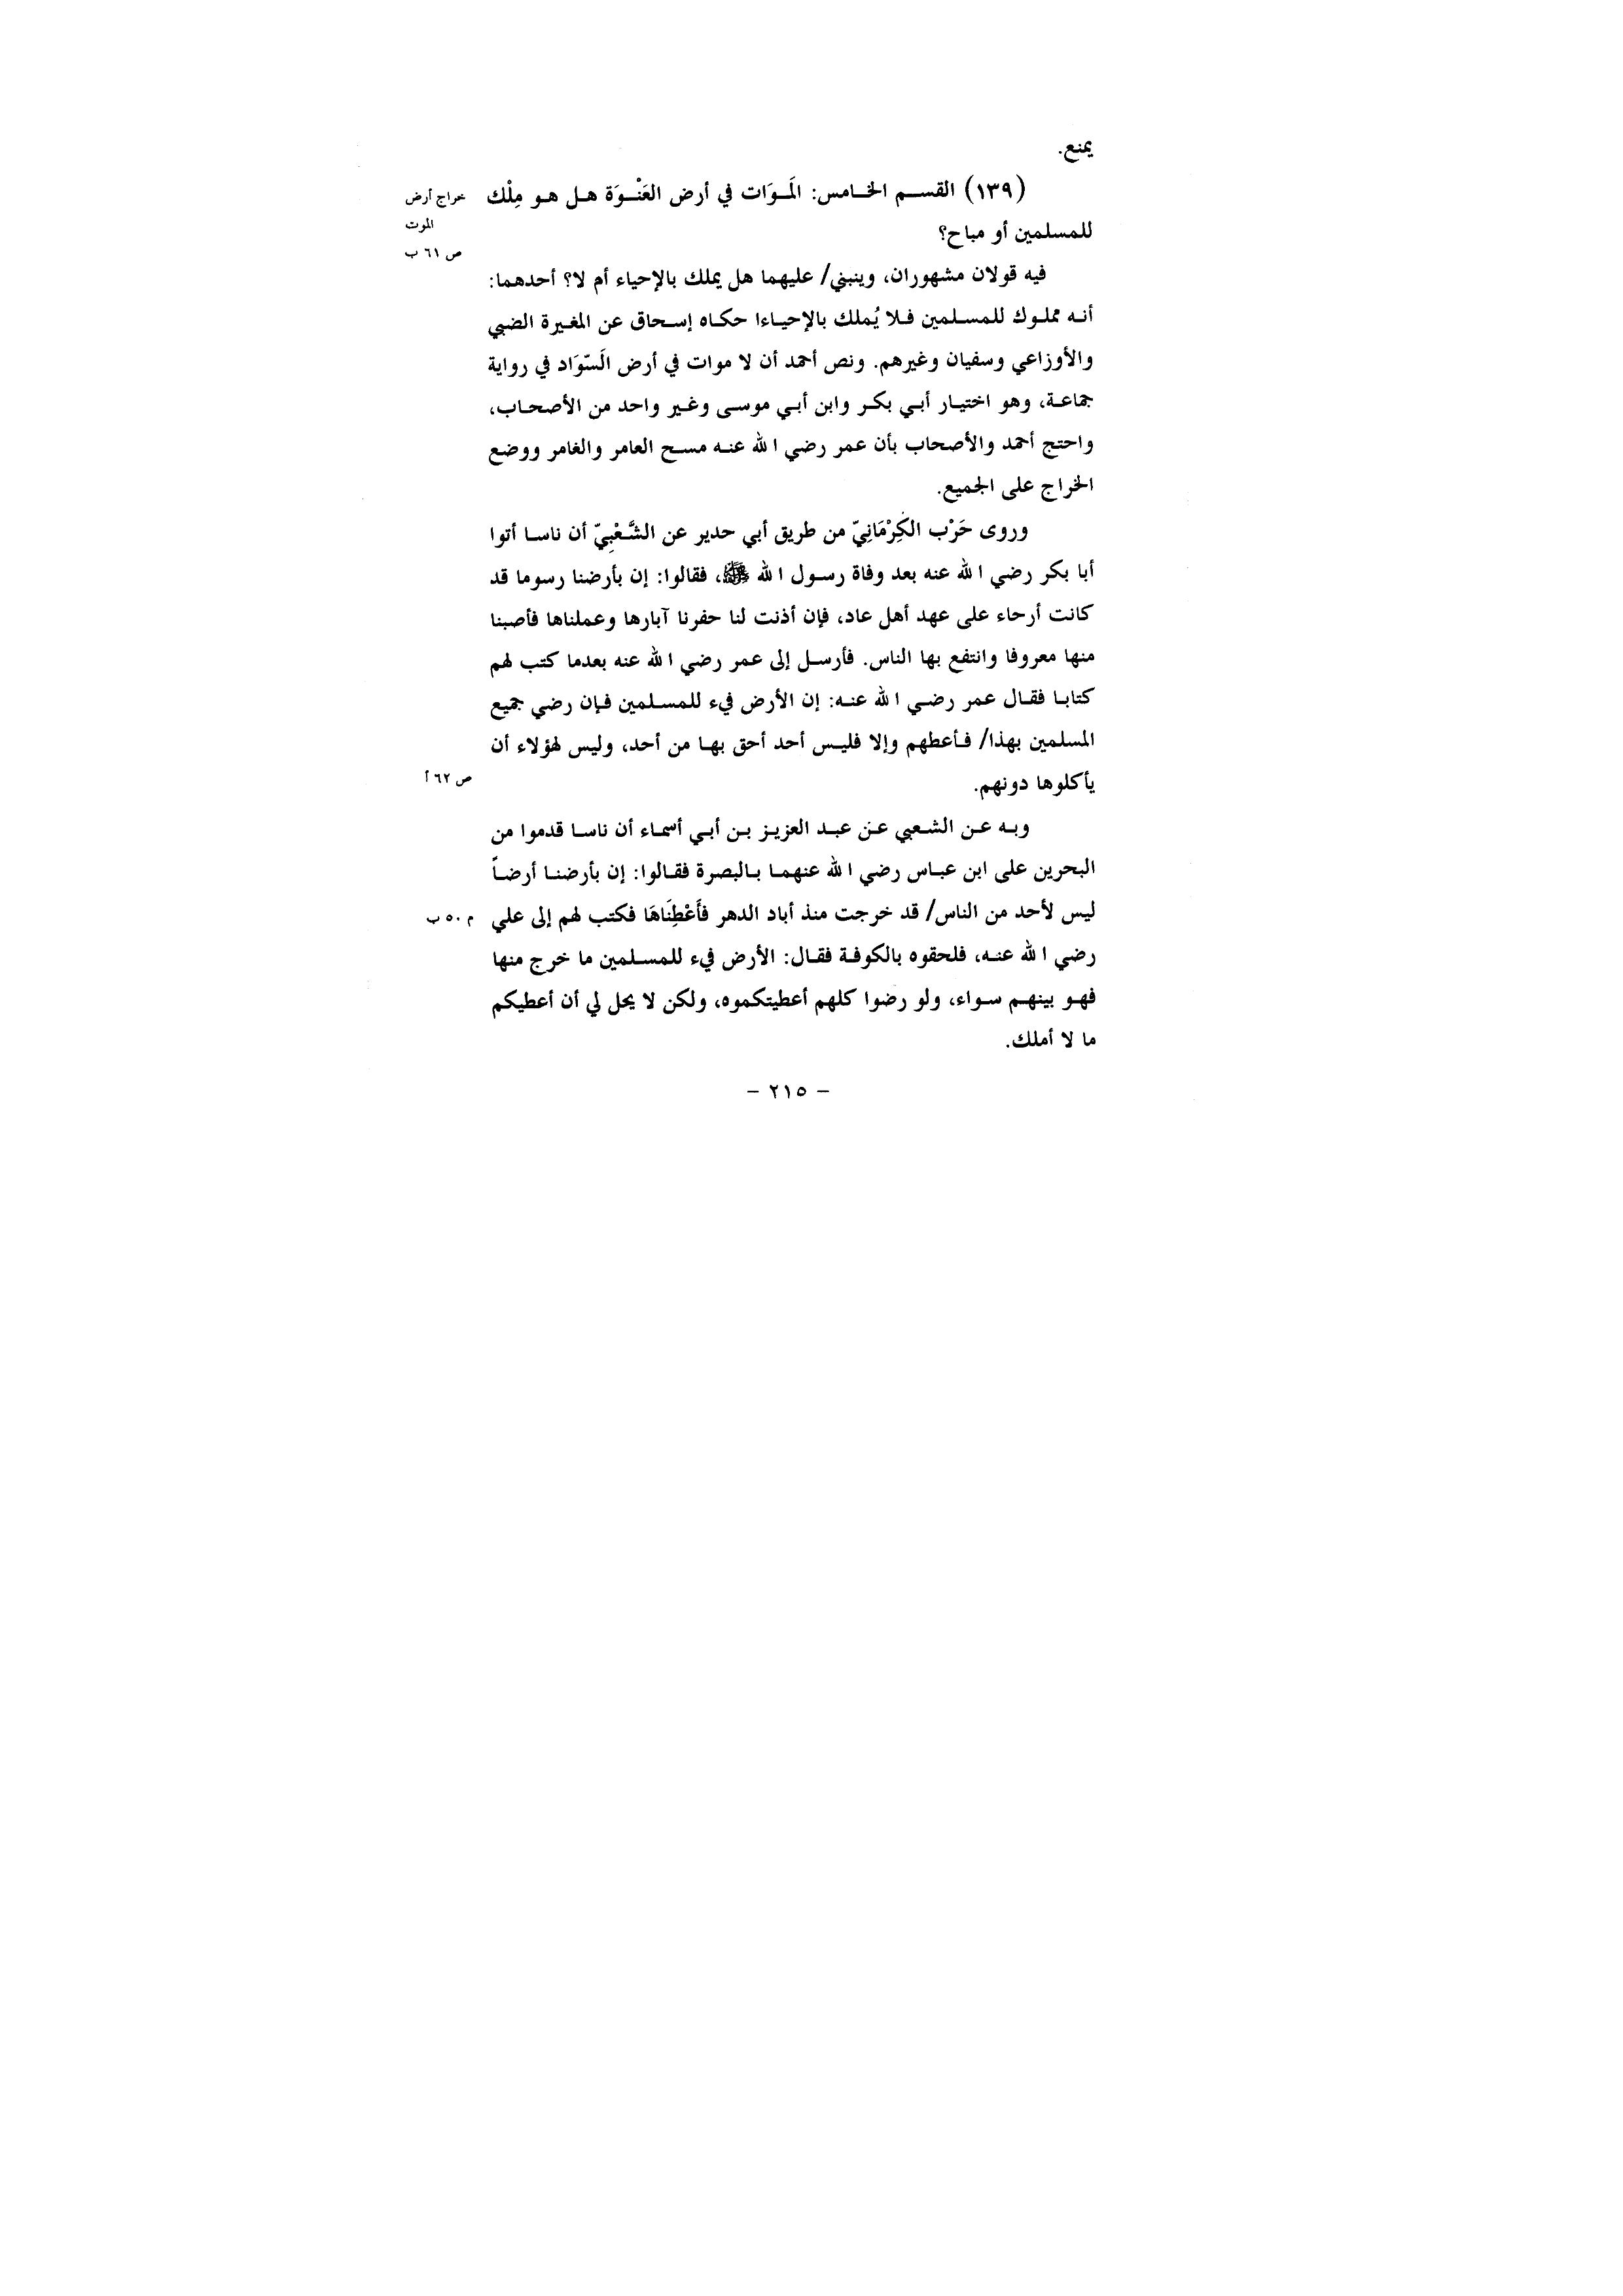 يمنع.
(١٣٩) القسم الخامس: المَوَات في أرض العَنْوَة هل هو مِلْك
خراج أرض
للمسلمين أو مباح؟
الموت
ص ٦١ ب
فيه قولان مشهوران، وينبني/ عليهما هل يملك بالإحياء أم لا؟ أحدهما:
أنه مملوك للمسلمين فلا يُملك بالإحياءا حكاه إسحاق عن المغيرة الضبي
والأوزاعي وسفيان وغيرهم. ونص أحمد أن لا موات في أرض السّوَاد في رواية
جماعة، وهو اختيار أبي بكر وابن أبي موسى وغير واحد من الأصحاب،
واحتج أحمد والأصحاب بأن عمر رضي الله عنه مسح العامر والغامر ووضع
الخراج على الجميع.
وروى حَرْب الكِرْمَانِيّ من طريق أبي حدير عن الشَّعْبِيّ أن ناسا أتوا
أبا بكر رضي الله عنه بعد وفاة رسول الله ﷺ، فقالوا: إن بأرضنا رسوما قد
كانت أرحاء على عهد أهل عاد، فإن أذنت لنا حفرنا آبارها وعملناها فأصبنا
منها معروفا وانتفع بها الناس. فأرسل إلى عمر رضي الله عنه بعدما كتب لهم
كتابا فقال عمر رضي الله عنه: إن الأرض فيء للمسلمين فإن رضي جميع
المسلمين بهذا/ فأعطهم وإلا فليس أحد أحق بها من أحد، وليس لهؤلاء أن
ص ٦٢ أ
يأكلوها دونهم.
وبه عن الشعبي عن عبد العزيز بن أبي أسماء أن ناسا قدموا من
البحرين على ابن عباس رضي الله عنهما بالبصرة فقالوا: إن بأرضنا أرضاً
ليس لأحد من الناس/ قد خرجت منذ أباد الدهر فأَعْطِنَاهَا فكتب لهم إلى علي
م ٥٠ ب
رضي الله عنه، فلحقوه بالكوفة فقال: الأرض فيء للمسلمين ما خرج منها
فهو بينهم سواء، ولو رضوا كلهم أعطيتكموه، ولكن لا يحل لي أن أعطيكم
ما لا أملك.
– ٢١٥ –